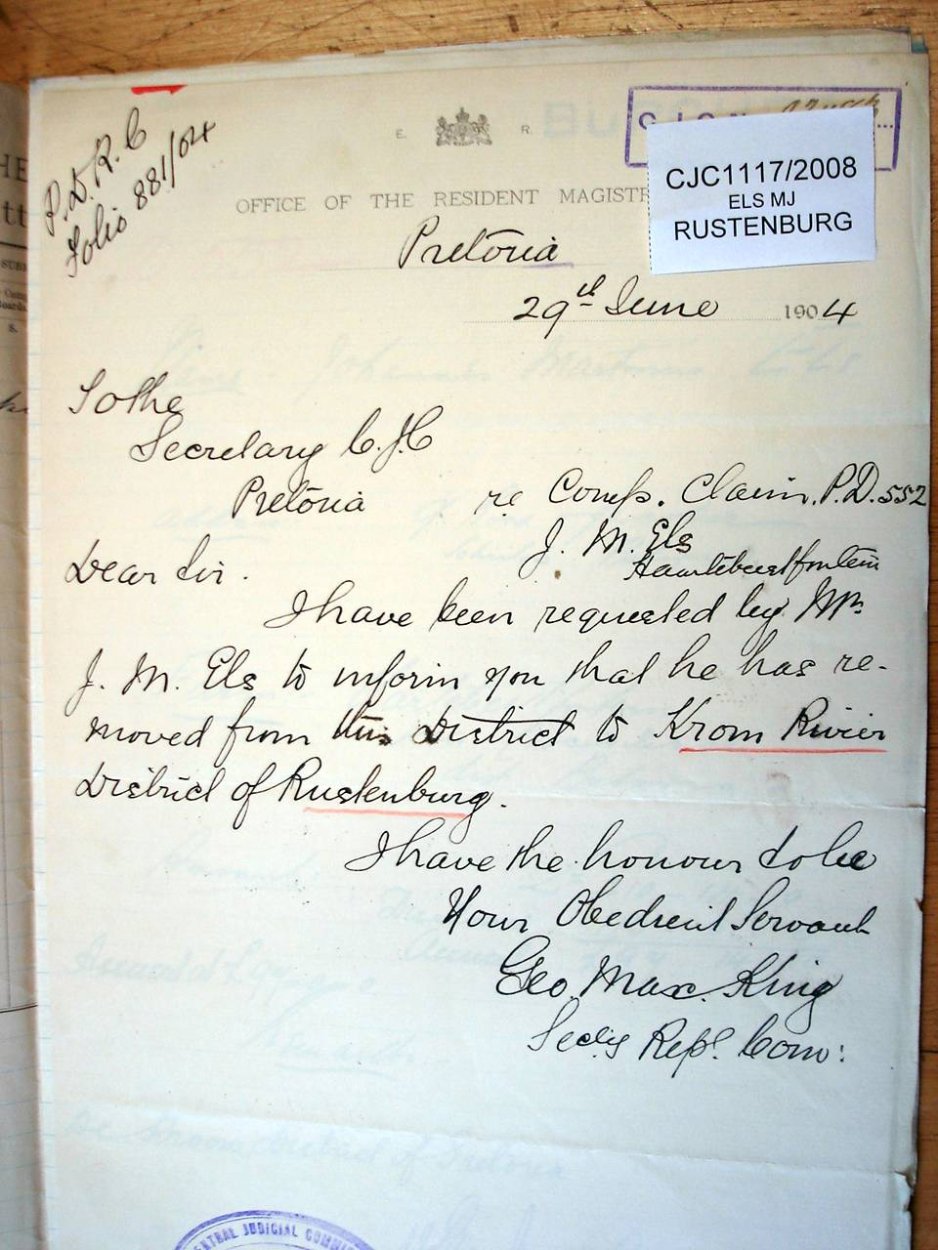 P.D.R.C
Folio 881/04
E. R.
C.J.C. No.
CJC1117/2008
ELS MJ
RUSTENBURG
OFFICE OF THE RESIDENT MAGISTR
Pretoria
29th June 1904
To the
Secretary C.J.C
Pretoria re Comp. Claim. P.D. 552
J. M. Els
Haartebeestfontein
Dear Sir.
I have been requested by Mr.
J. M. Els to inform you that he has re-
moved from this District to Krom Rivier
District of Rustenburg.
I have the honour to be
Your Obedient Servant
Geo. Max. King
Secty Repn. Com:
CENTRAL JUDICIAL COMMI